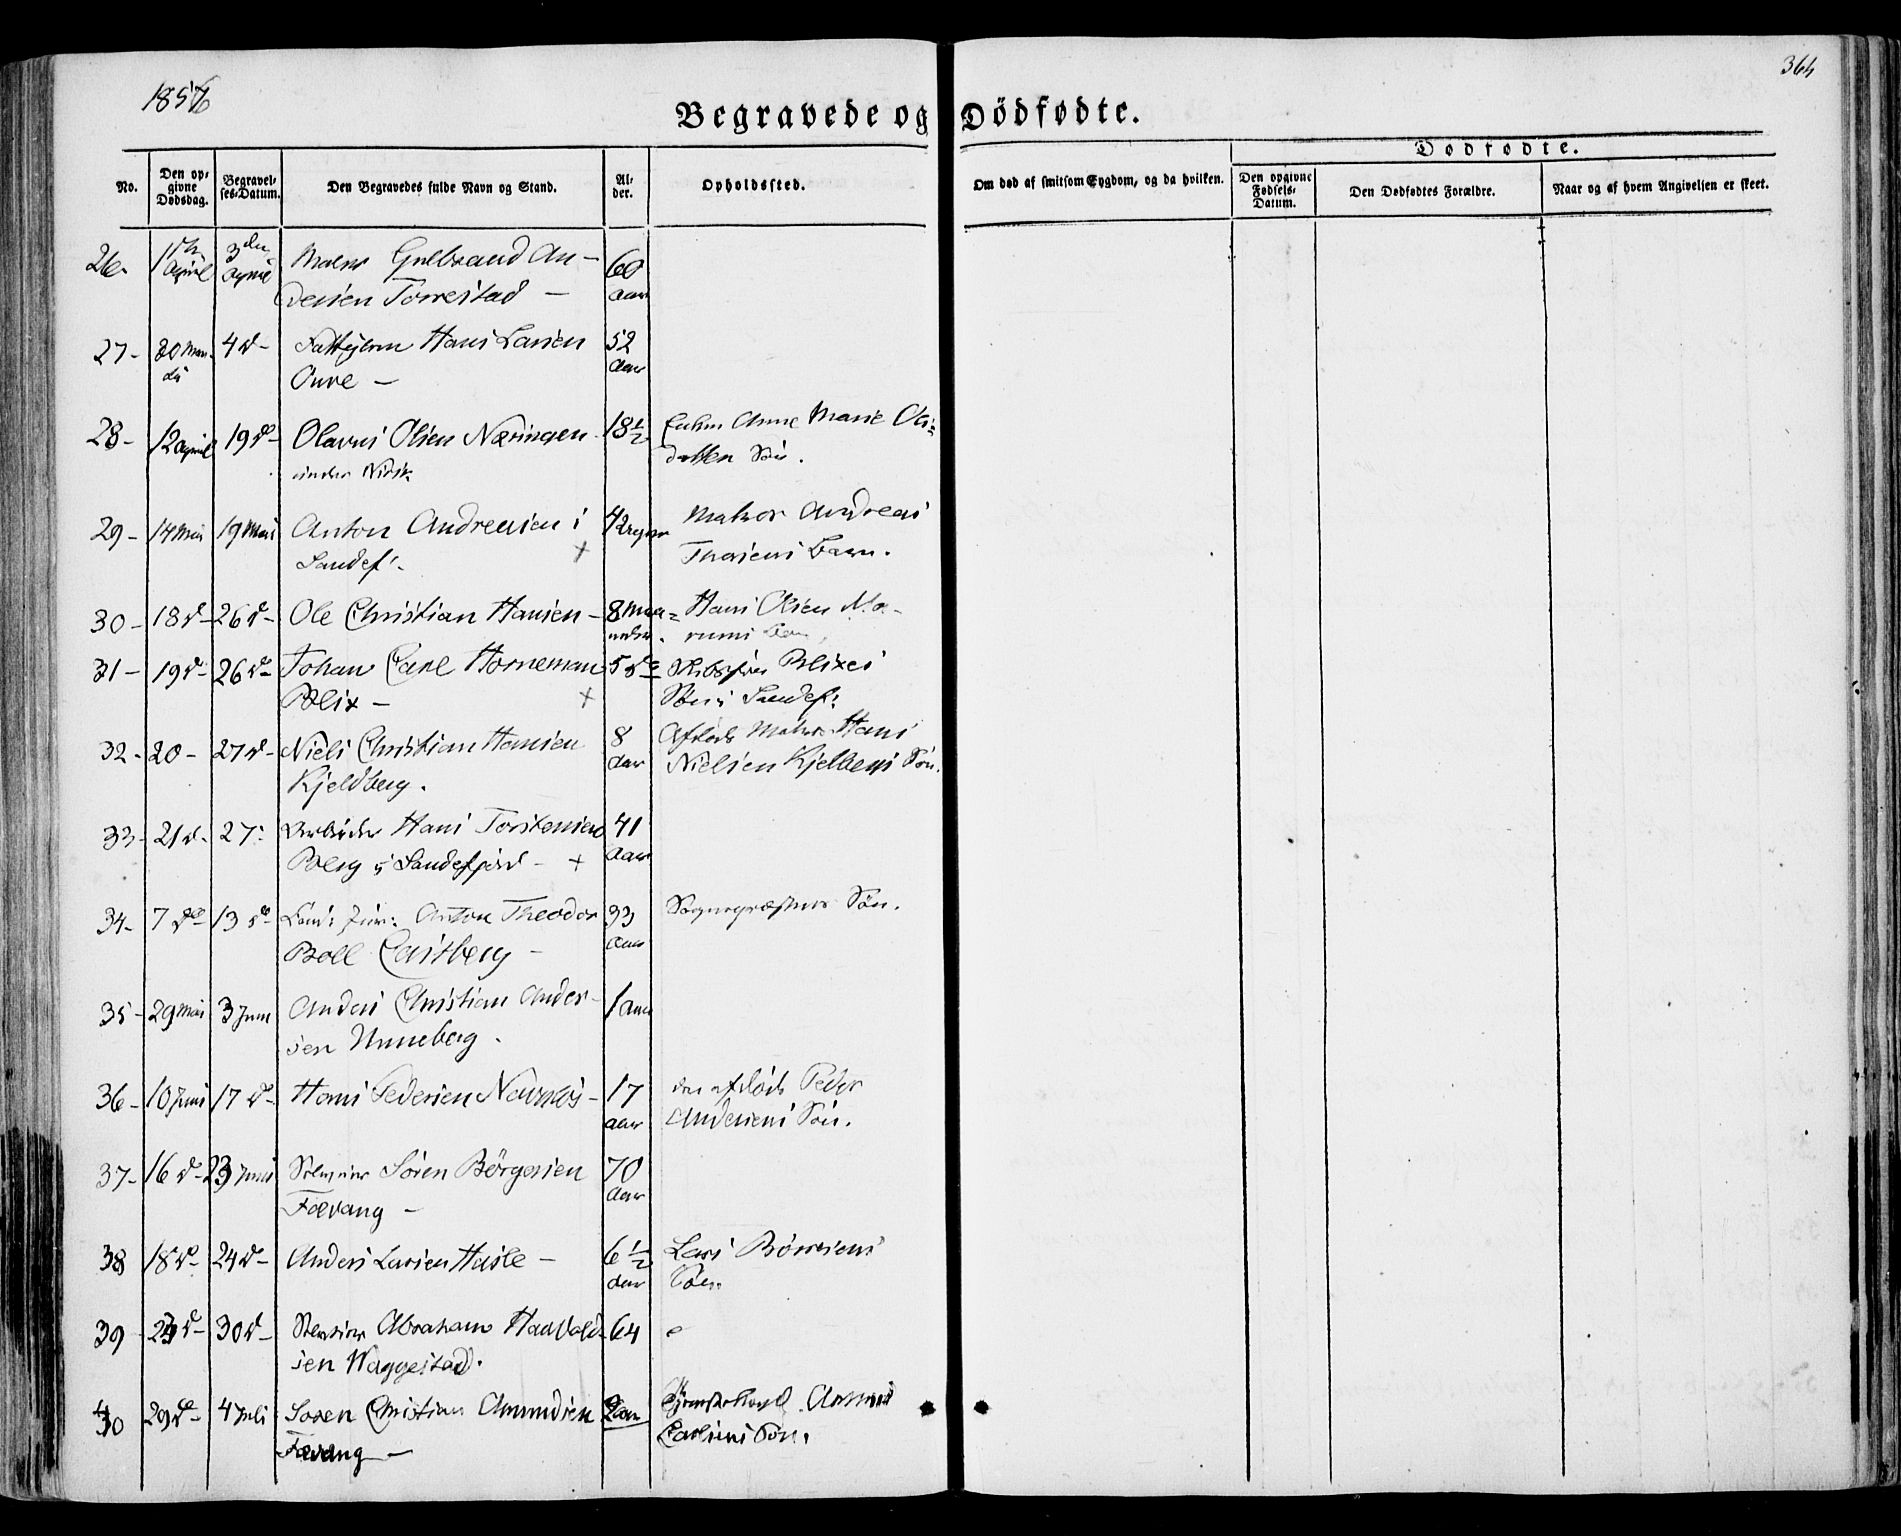 1856
364
Begravede og Dödfødte.
Dødfødte.
No.
Den opgivne Dødsdag.
Begravelses-Datum.
Den Begravedes fulde Navn og Stand.
Alder.
Opholdssted.
Om død af smitsom Sygdom, og da hvilken.
Den opgivne Fødsels-Datum.
Den Dødfødtes Forældre.
Naar og af hvem Angivelsen er skeet.
26. 1 April 3 den April Gulbrand An- 60
dersen Torrestad - aar
27- 30 4 d- Hans Larsen 52
- aar
28- 12 April 19 d- Olavus Olsen Næringen 18 1/2 Anne Marie Ols=
under datters Søn.
29- 14 Mai 19 Mai Anton Andreasen i 4 Matros Andreas
Sandef. + Barn.
30- 18 d- 26 d- Ole Christian Hansen- 8 Maa= Hans Olsen
neder.
31- 19 d- 26 d- Johan Carl Horneman 5 do Blixes
Blix - + Søn i Sandef:
32- 20- 27 d- Niels Christian Hansen 8 Afdøde Matros Hans
Kjeldberg. aar Nielsen Søn.
33- 21 d- 27. Arbeider Hans Torstensen 41
Berg i Sandefjord - + aar
34- 7 do 13 do Cand: jur: Anton Theodor 33 Sognepræstens Søn.
Boll Castberg - aar
35- 29 Mai 3 Juni Anders Christian Ander- 1 aar
sen Unneberg.
36- 10 Juni 17 d- Hans Pedersen 17 den afdøde Peder
aar Andersens Søn.
37- 16 d- 23 Juni Søren Børgesen 70
Fævang - aar
38 18 d- 24 d- Anders Larsen Hasle - 6 1/2 Lars
aar Søn.
39 24 d- 30 d- Abraham 64
sen Waggestad.
40 29 d- 4 Juli Søren Christian Amundsen 2 aar
Fævang - Søn.